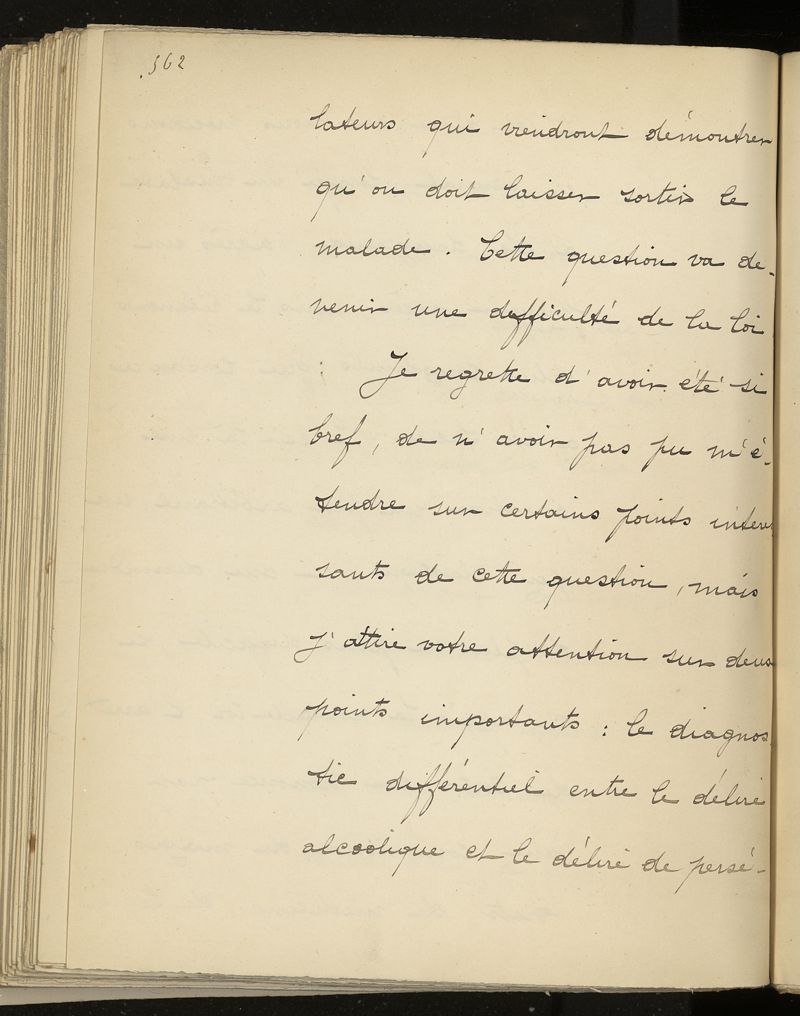 362
lateurs qui viendront démontrer
qu'on doit laisser sortir le
malade. Cette question va de-
venir une difficulté de la loi
Je regrette d'avoir été si
bref, de n'avoir pas pu m'é-
tendre sur certains points intéres
sants de cette question, mais
j'attire votre attention sur deux
points importants : le diagnos
tic différentiel entre le délire
alcoolique et le délire de persé-